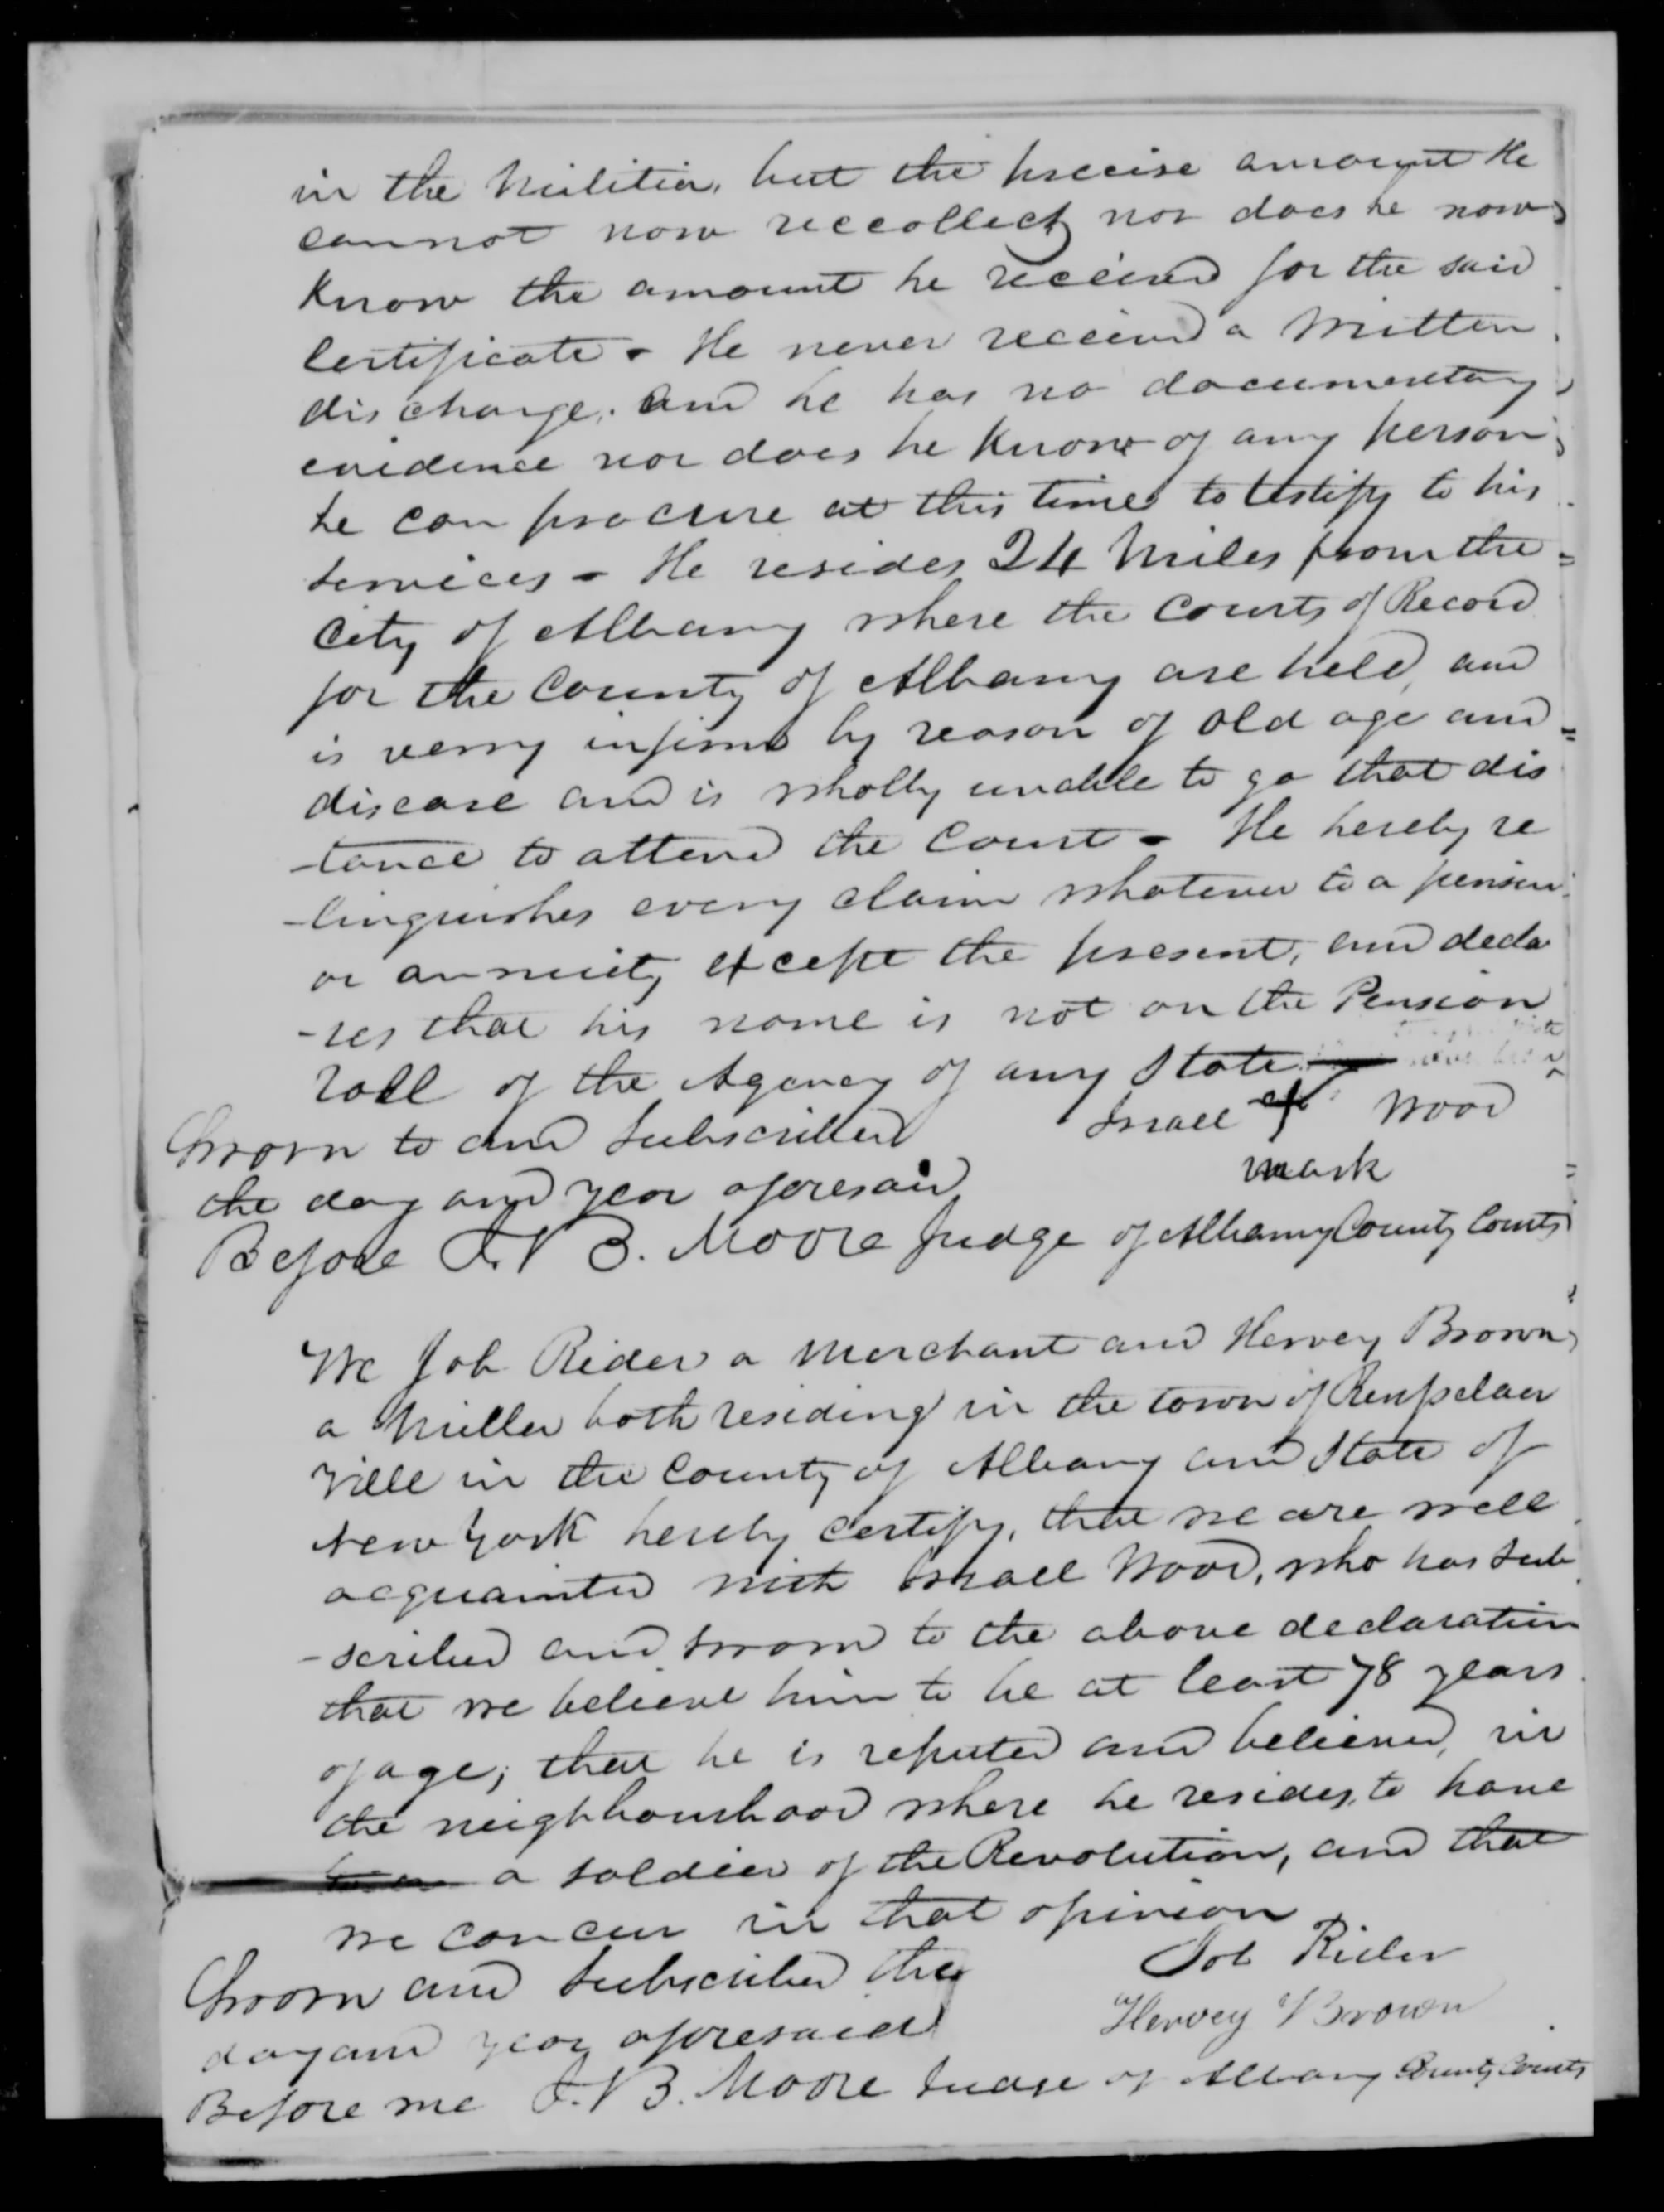 in the Militia, but the precise amount he
cannot now reccollect nor does he now
know the amount he received for the said
Certificate - He never received a written
discharge, and he has no documentary
evidence nor does he know of any person
he can procure at this time to testify to his
services - He resides 24 Miles from the
City of Albany where the Courts of Record
for the County of Albany are held, and
is verry infirm by reason of old age and
disease and is wholly unable to go that dis
-tance to attend the Court - He hereby re
-linquishes every claim whatever to a pension
or annuity except the present, and decla
-res that his name is not on the Pension
roll of the Agency of any State
Israel X Wood
mark
Sworn to and Subscribed
the day and year aforesaid
Before J. V B. Moore Judge of Albany County Courts
We Job Rider a Merchant and Hervey Brown
a Miller both residing in the town of Rensselaer
Ville in the County of Albany and State of
New York hereby certify, that we are well
acquainted with Israel Wood, who has sub
-scribed and sworn to the above declaration
that we believe him to be at least 78 years
of age; that he is reputed and believed, in
the neighbourhood where he resides, to have
been a soldier of the Revolution, and that
we concur in that opinion
Job Rider
Hervey Brown
Sworn and Subscribed the
day and year aforesaid
Before me J. V B. Moore Judge of Albany County Courts